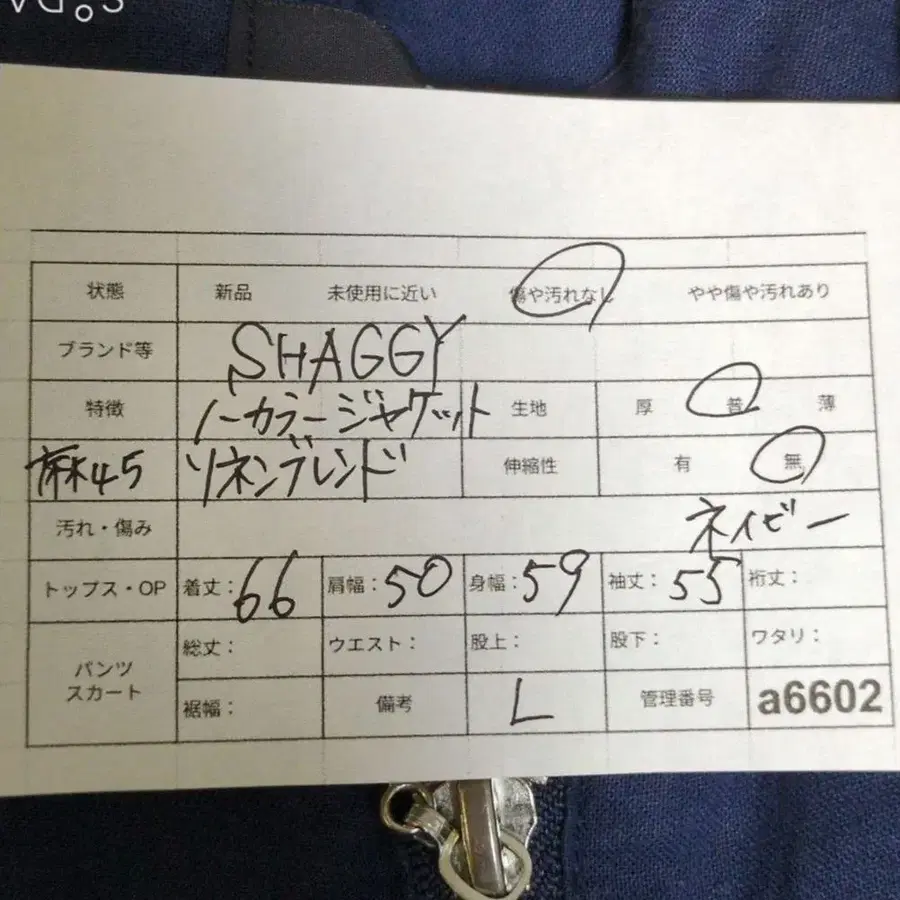 状態 新品 未使用に近い 傷や汚れなし やや傷や汚れあり
ブランド等 SHAGGY
特徴 ノーカラージャケット 生地 厚 普 薄
麻45 リネンブレンド 伸縮性 有 無
汚れ・傷み ネイビー
トップス・OP 着丈:66 肩幅:50 身幅:59 袖丈:55 裄丈:
パンツ スカート 総丈: ウエスト: 股上: 股下: ワタリ:
裾幅: 備考 L 管理番号 a6602